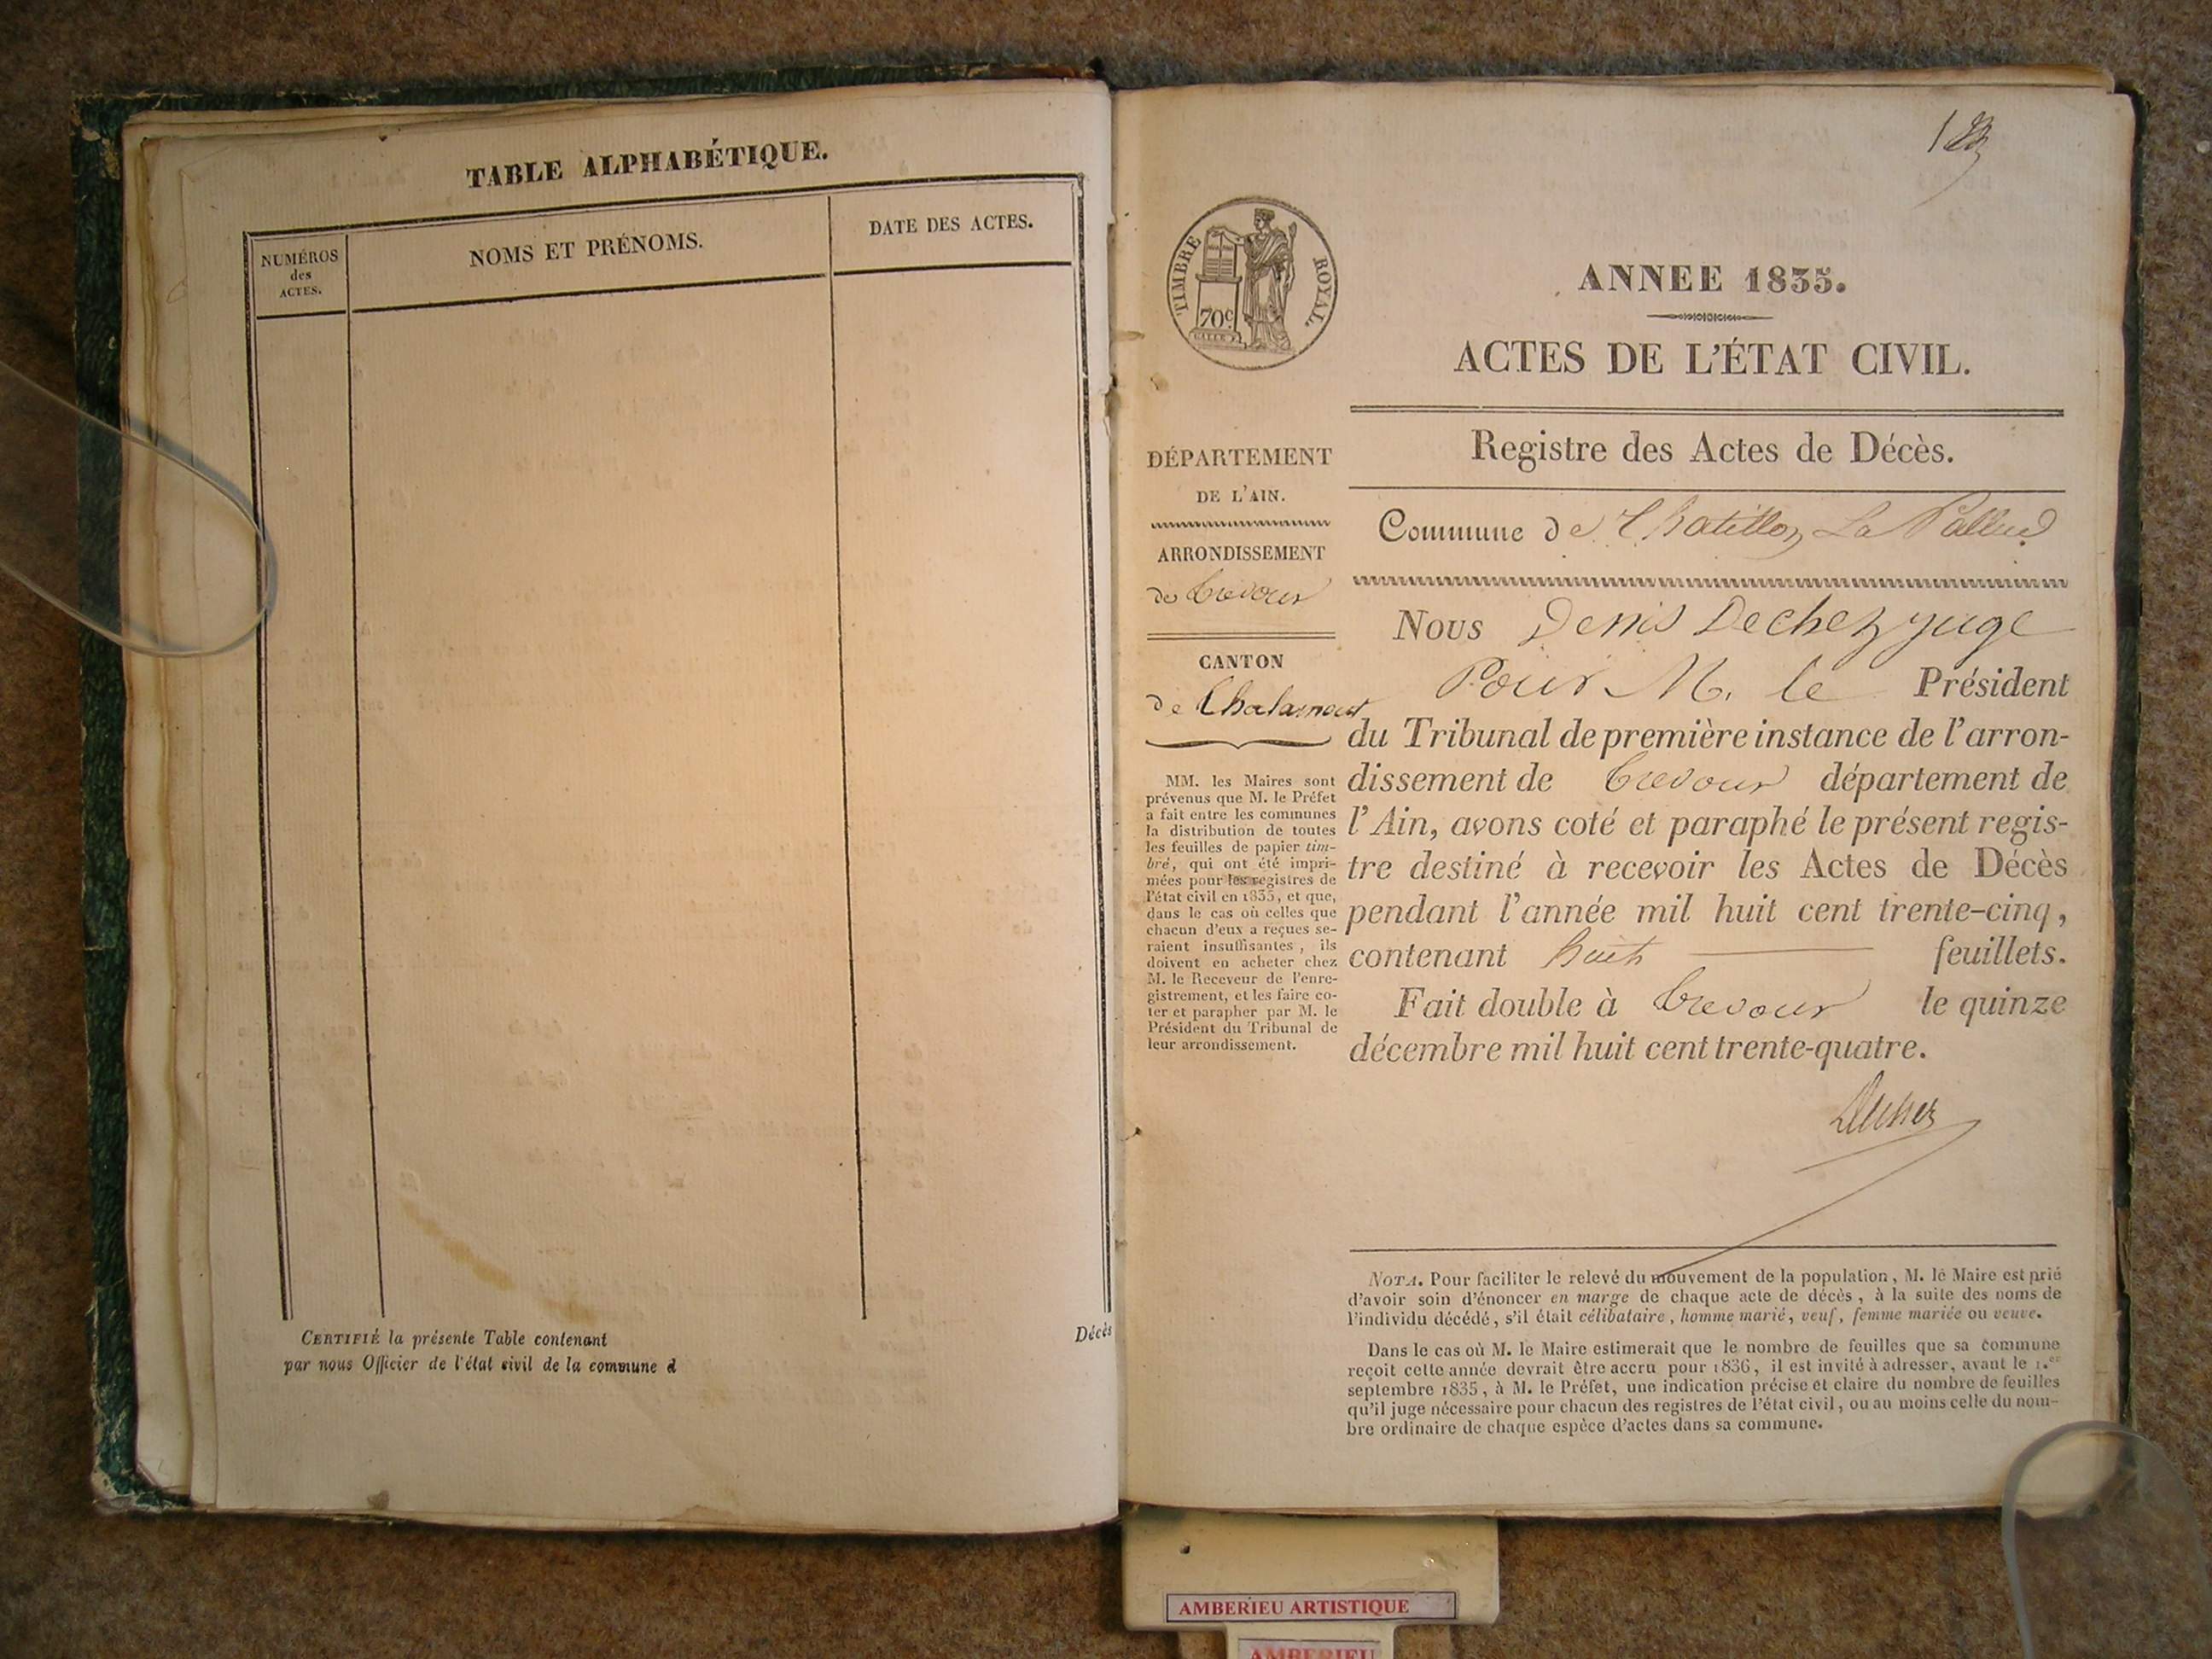 TABLE ALPHABÉTIQUE.
NUMÉROS
des
ACTES.
NOMS ET PRÉNOMS.
DATE DES ACTES.
CERTIFIÉ la présente Table contenant
par nous Officier de l'état civil de la commune d
Décès
TIMBRE ROYAL.
70c
ANNEE 1835.
ACTES DE L'ÉTAT CIVIL.
Registre des Actes de Décès.
DÉPARTEMENT
DE L'AIN.
ARRONDISSEMENT
de Trevoux
CANTON
de Chalamont
MM. les Maires sont
prévenus que M. le Préfet
a fait entre les communes
la distribution de toutes
les feuilles de papier tim-
bré, qui ont été impri-
mées pour les registres de
l'état civil en 1835, et que,
dans le cas où celles que
chacun d'eux a reçues se-
raient insuffisantes, ils
doivent en acheter chez
M. le Receveur de l'enre-
gistrement, et les faire co-
ter et parapher par M. le
Président du Tribunal de
leur arrondissement.
Commune de Chatillon La Pallud
Nous Denis Dechez juge
Pour M. le Président
du Tribunal de première instance de l'arron-
dissement de Trevoux département de
l'Ain, avons coté et paraphé le présent regis-
tre destiné à recevoir les Actes de Décès
pendant l'année mil huit cent trente-cinq,
contenant huit feuillets.
Fait double à Trevoux le quinze
décembre mil huit cent trente-quatre.
Dechez
NOTA. Pour faciliter le relevé du mouvement de la population, M. le Maire est prié
d'avoir soin d'énoncer en marge de chaque acte de décès, à la suite des noms de
l'individu décédé, s'il était célibataire, homme marié, veuf, femme mariée ou veuve.
Dans le cas où M. le Maire estimerait que le nombre de feuilles que sa commune
reçoit cette année devrait être accru pour 1836, il est invité à adresser, avant le 1.er
septembre 1835, à M. le Préfet, une indication précise et claire du nombre de feuilles
qu'il juge nécessaire pour chacun des registres de l'état civil, ou au moins celle du nom-
bre ordinaire de chaque espèce d'actes dans sa commune.
AMBERIEU ARTISTIQUE
AMBERIEU